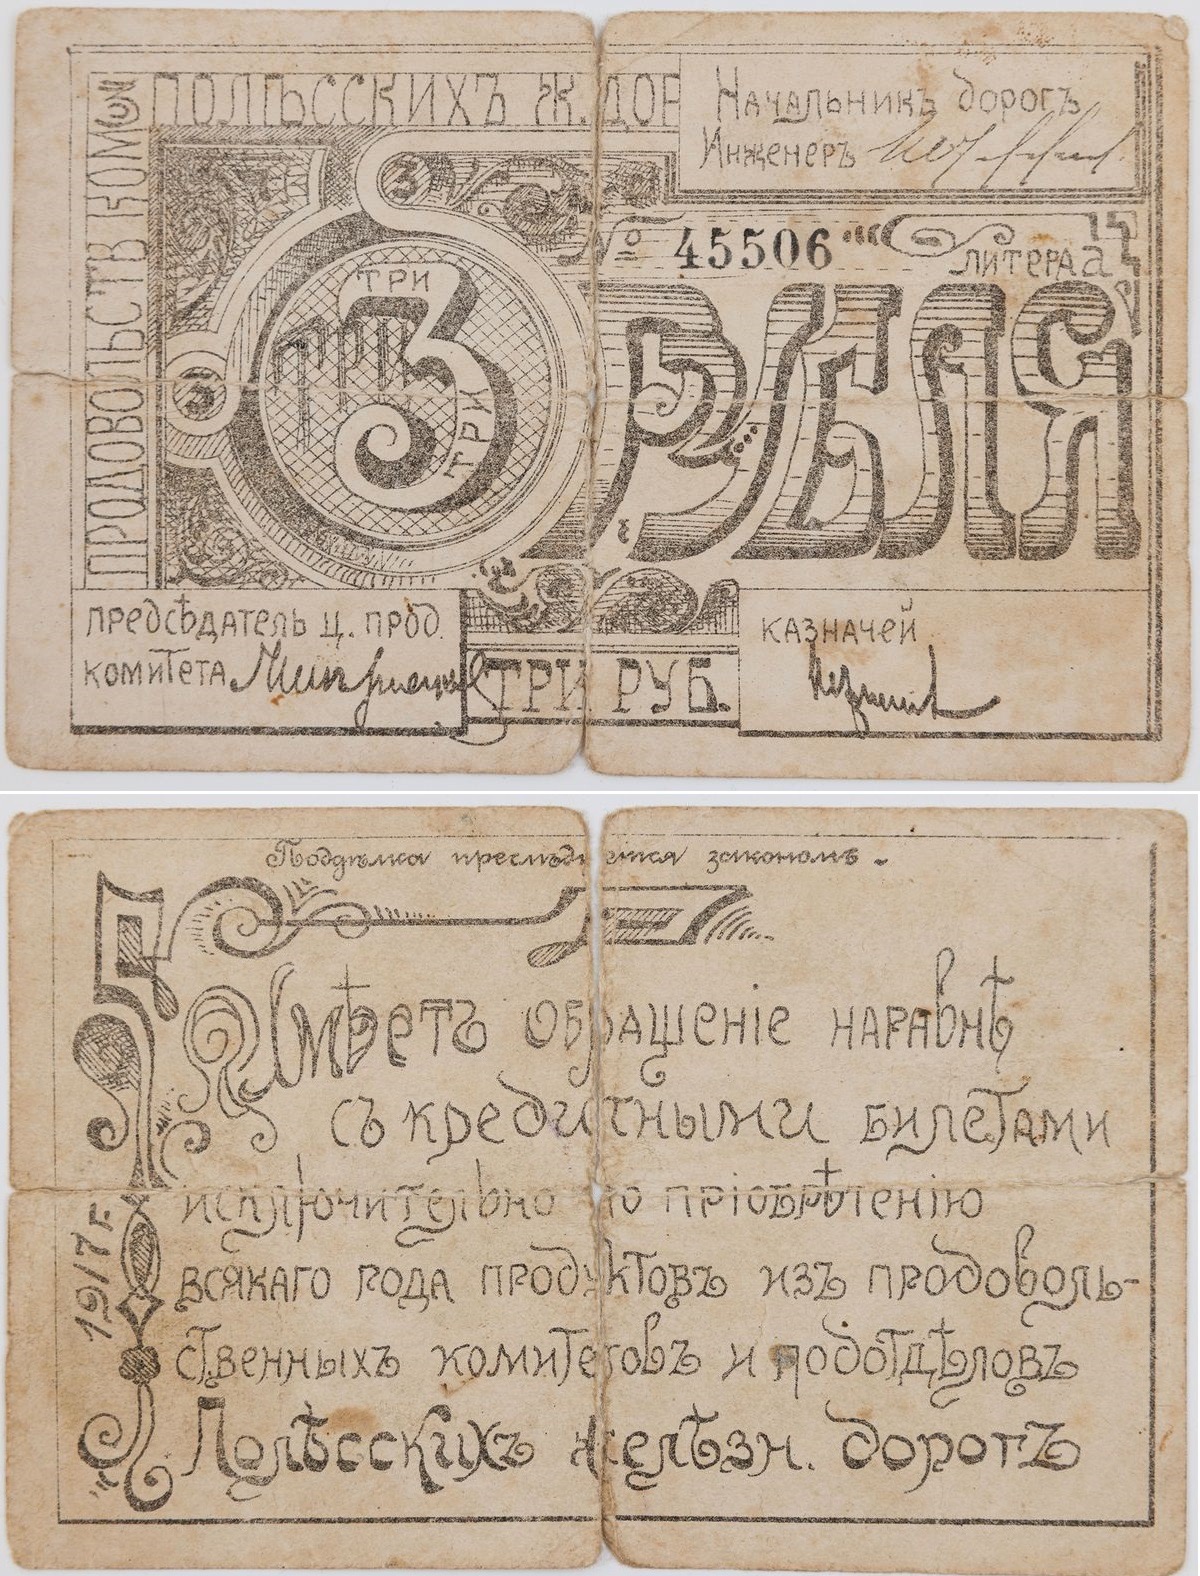 ПРОДОВОЛЬСТВ КОМ
ПОЛѢССКИХЪ Ж. ДОР
Начальникъ дорогъ
Инженеръ
№ 45506
ЛИТЕРА а
3
ТРИ
ТРИ
ТРИ
3
3
РУБЛЯ
ПРЕДСѢДАТЕЛЬ Ц. ПРОД.
КОМИТЕТА
ТРИ РУБ.
КАЗНАЧЕЙ
Поддѣлка преслѣдуется закономъ.
Имѣетъ обращеніе наравнѣ
съ кредитными билетами
исключительно по пріобрѣтенію
всякаго рода продуктовъ изъ продоволь-
ственныхъ комитетовъ и подотдѣловъ
Полѣсскихъ желѣзн. дорогъ
1917 г.